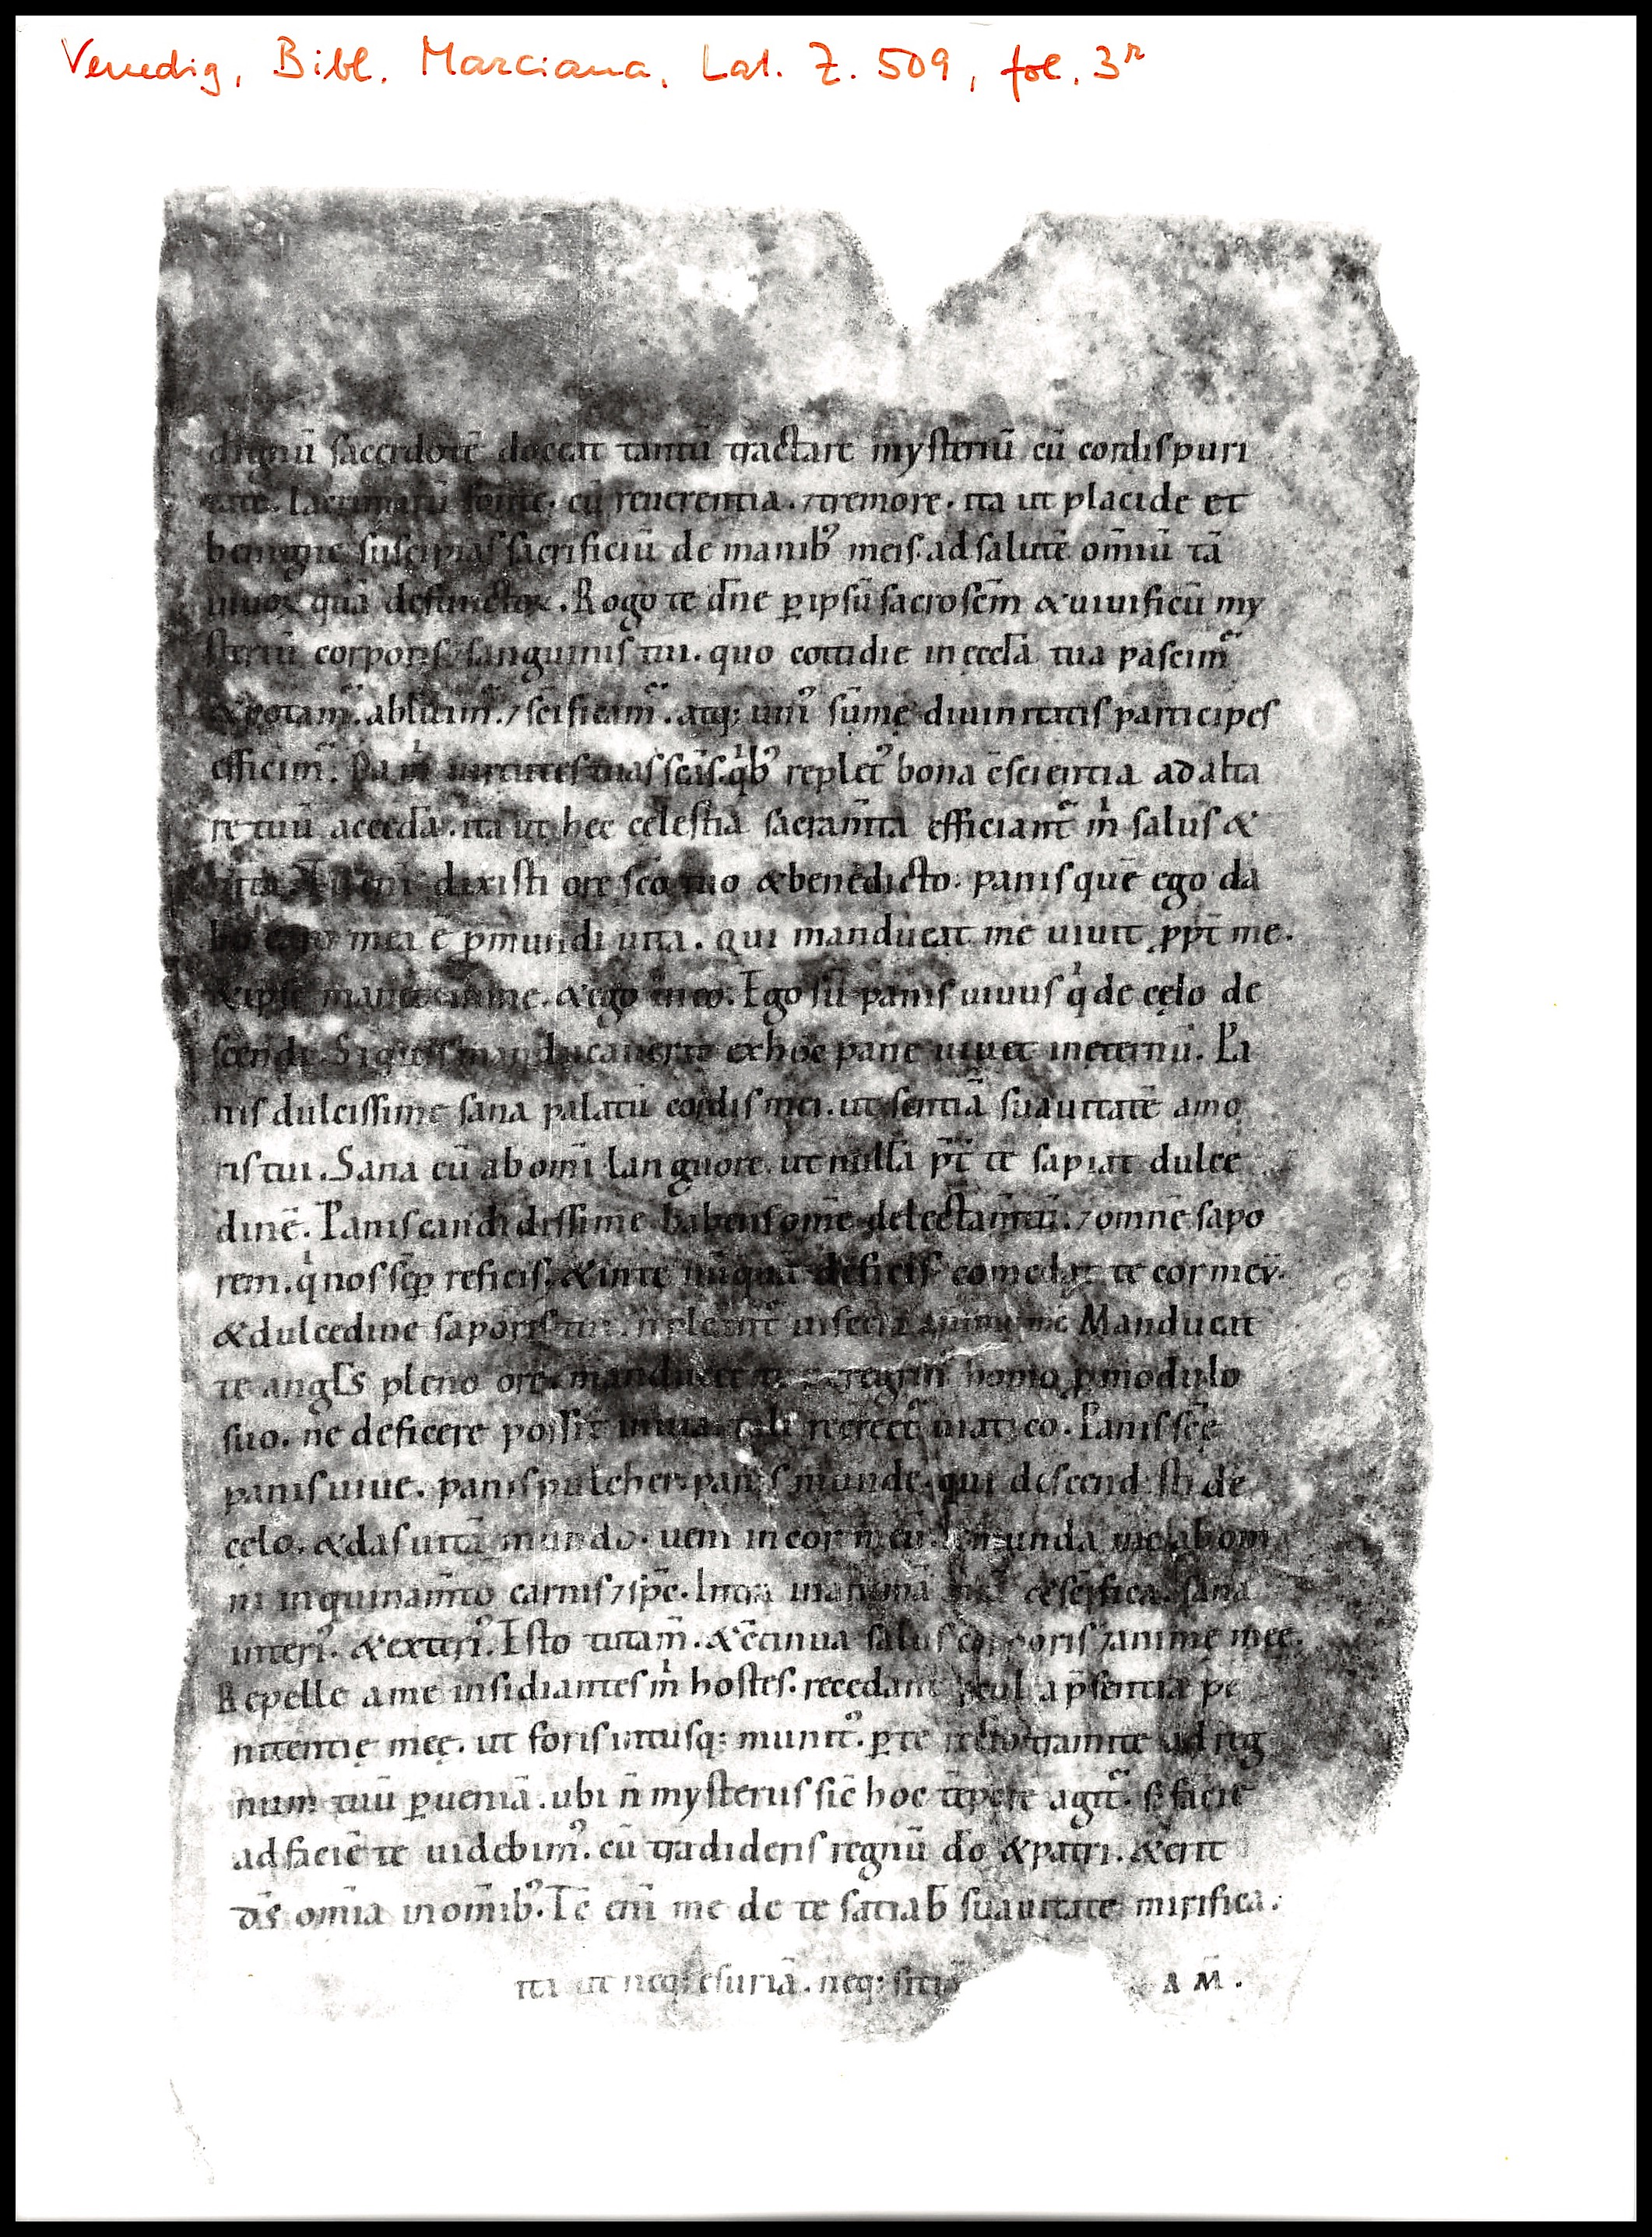 Venedig, Bibl. Marciana, Lat. Z. 509, fol. 3r
dignū sacerdotē doceat tantū tractare mysteriū cū cordis puri
tate. lacrimarū fonte. cū reuerentia. ⁊tremore. ita ut placide et
benigne suscipias sacrificiū de manib; meis. ad salutē om̄iū tā
uiuoꝝ quā defunctoꝝ. Rogo te dn̄e ꝑ ipsū sacrosc̄m & uiuificū my
steriū corporis ⁊sanguinis tui. quo cottidie in eccl̄a tua pascim᷒
&potam᷒. abluim᷒. ⁊sc̄ificam᷒. atq; uni᷒ sūmę diuinitatis participes
efficim᷒. Da m̄ uirtutes tuas scās. q̄b᷒ replet᷒ bona c̄scientia ad alta
re tuū accedā. ita ut hec celestia sacram̄ta efficiant᷒ m̄ salus &
dixisti ore sc̄o tuo & benedicto. panis quē ego da
bo caro mea ē ꝑ mundi uita. Qui manducat me uiuit ꝓpt̄ me.
&ipse manet in me. & ego in eo. Ego sū panis uiuus q̄ de cęlo de
scendi. Siquis manducauerit ex hoc pane uiuet in eternū. Pa
nis dulcissime sana palatū cordis mei. ut sentiā suauitatē amo
ris tui. Sana eū ab om̄i languore. ut nullā p̄t te sapiat dulce
dinē. Panis candidissime habens om̄e delectam̄tū. ⁊omnē sapo
rem. q̄ nos sēꝑ reficis. & in te nūquā deficis. comedat te cor meū.
& dulcedine saporis tui. uiscera Manducat
te angl̄s pleno ore. manducet te homo ꝑ modulo
suo. ne deficere possit in uia tali uiatico. Panis sc̄e
panis uiue. panis pulcher. panis munde. qui descendisti de
cęlo. & das uitā mundo. ueni in cor meū. & munda me ab om
ni inquinam̄to carnis ⁊ sp̄c. Intra in animā meā & sc̄ifica. sana
interi᷒. & exteri᷒. Esto tutam̄. & c̄tinua salus corporis ⁊animę męę.
Repelle a me insidiantes m̄ hostes. recedant ꝓcul a p̄sentia po
tentię męę. ut foris intusq; munit᷒. ꝑ te tramite ad reg
num tuū ꝑueniā. ubi n̄ mysteriis sic̄ hoc tēpore agit᷒. s; faciē
ad faciē te uidebim᷒. cū tradideris regnū do & patri. & erit
ds̄ om̄ia in om̄ib᷒. Tc̄ eni me de te satiab᷒ suauitate mirifica.
ita ut neq; esuriā. neq; sitiā AM̄.